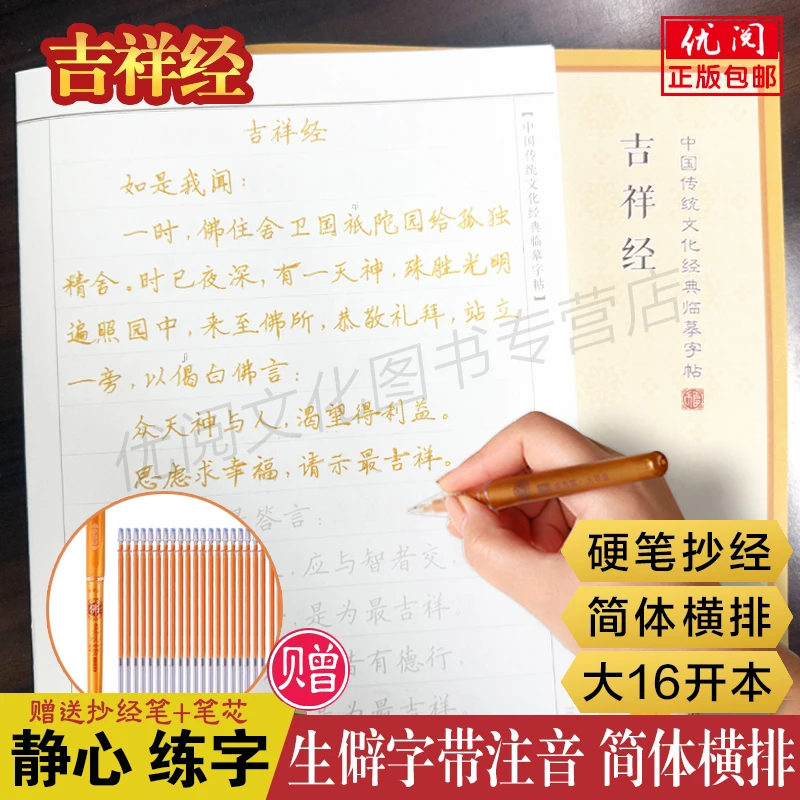 吉祥经
优阅
正版包邮
吉祥经
如是我闻：
一时，佛住舍卫国祇陀园给孤独
精舍。时已夜深，有一天神，殊胜光明
遍照园中，来至佛所，恭敬礼拜，站立
jì
一旁，以偈白佛言：
众天神与人，渴望得利益。
思虑求幸福，请示最吉祥。
答言：
应与智者交，
是为最吉祥。
有德行，
为最吉祥。
【中国传统文化经典临摹字帖】
吉祥经
中国传统文化经典临摹字帖
优阅文化图书专营店
硬笔抄经
简体横排
大16开本
赠
赠送抄经笔+笔芯
静心 练字
生僻字带注音 简体横排